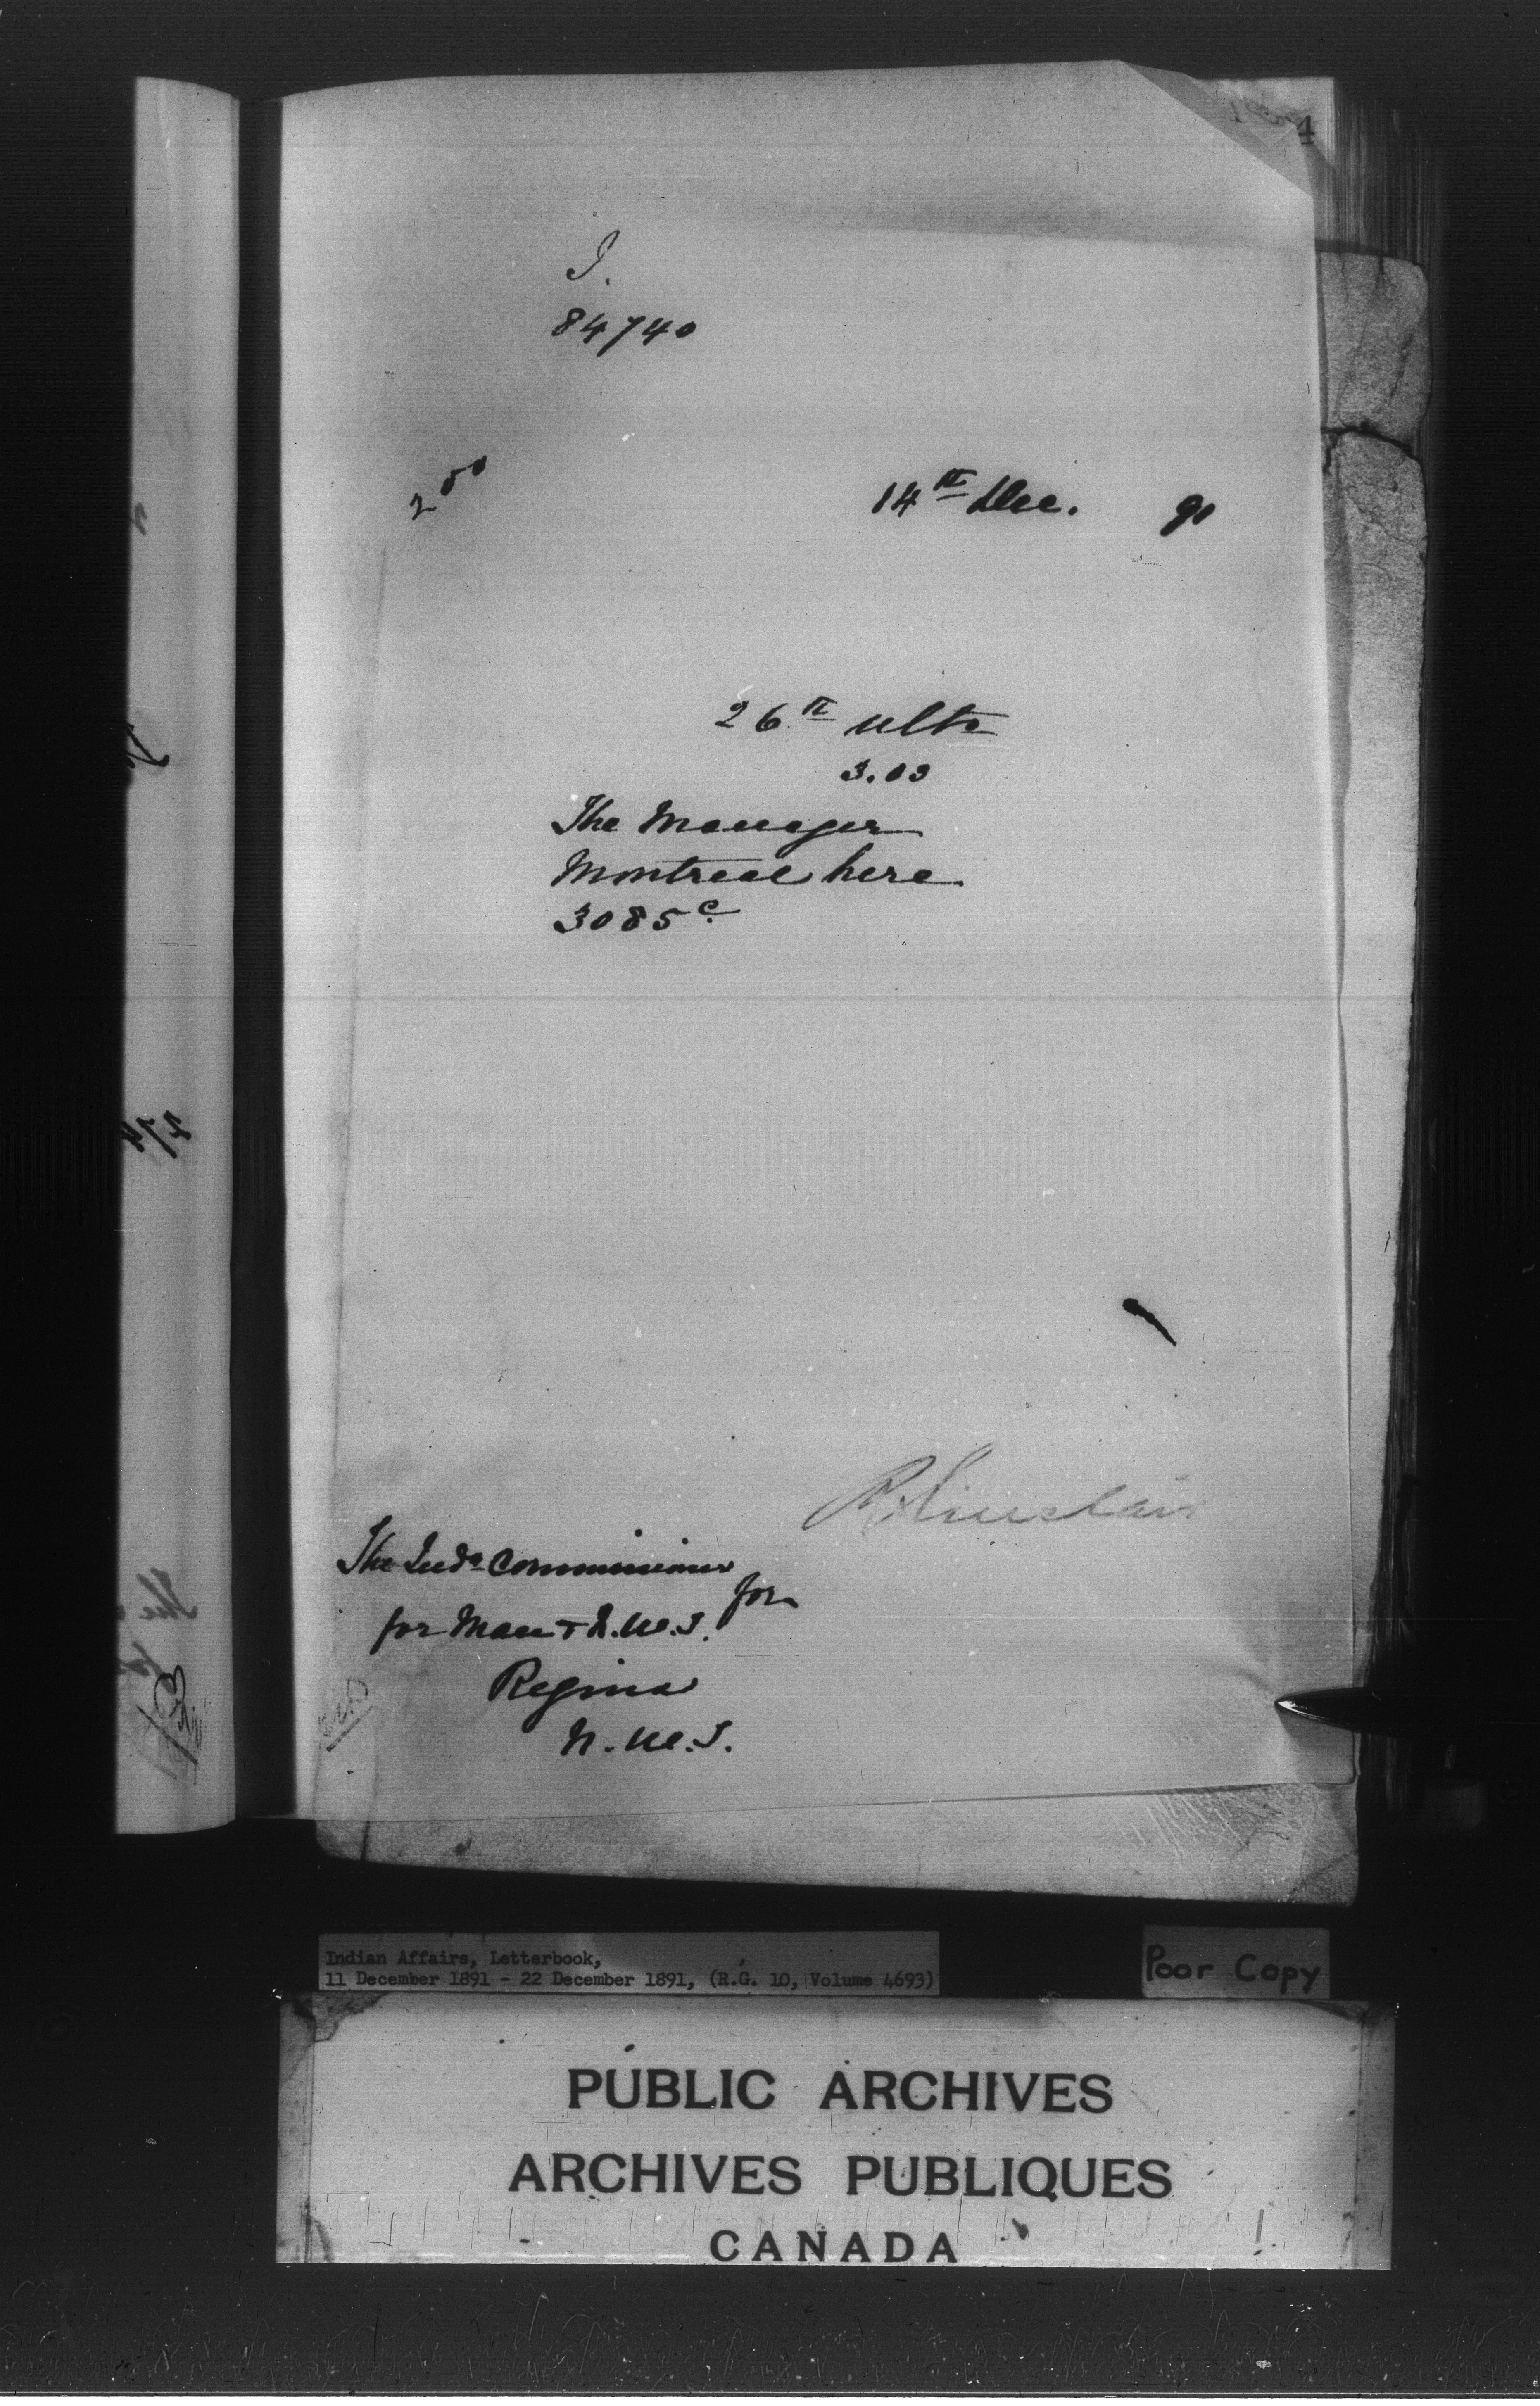 4
I.
84740
200
14th Dec. 91
26th ulto
3.03
The Manager
Montreal here
3085c.
R Sinclair
The Indn Commissioner
for
for Man & N.W.T.
Regina
N.W.T.
Indian Affairs, Letterbook,
11 December 1891 - 22 December 1891, (R.G. 10, Volume 4693)
Poor Copy
PUBLIC ARCHIVES
ARCHIVES PUBLIQUES
CANADA